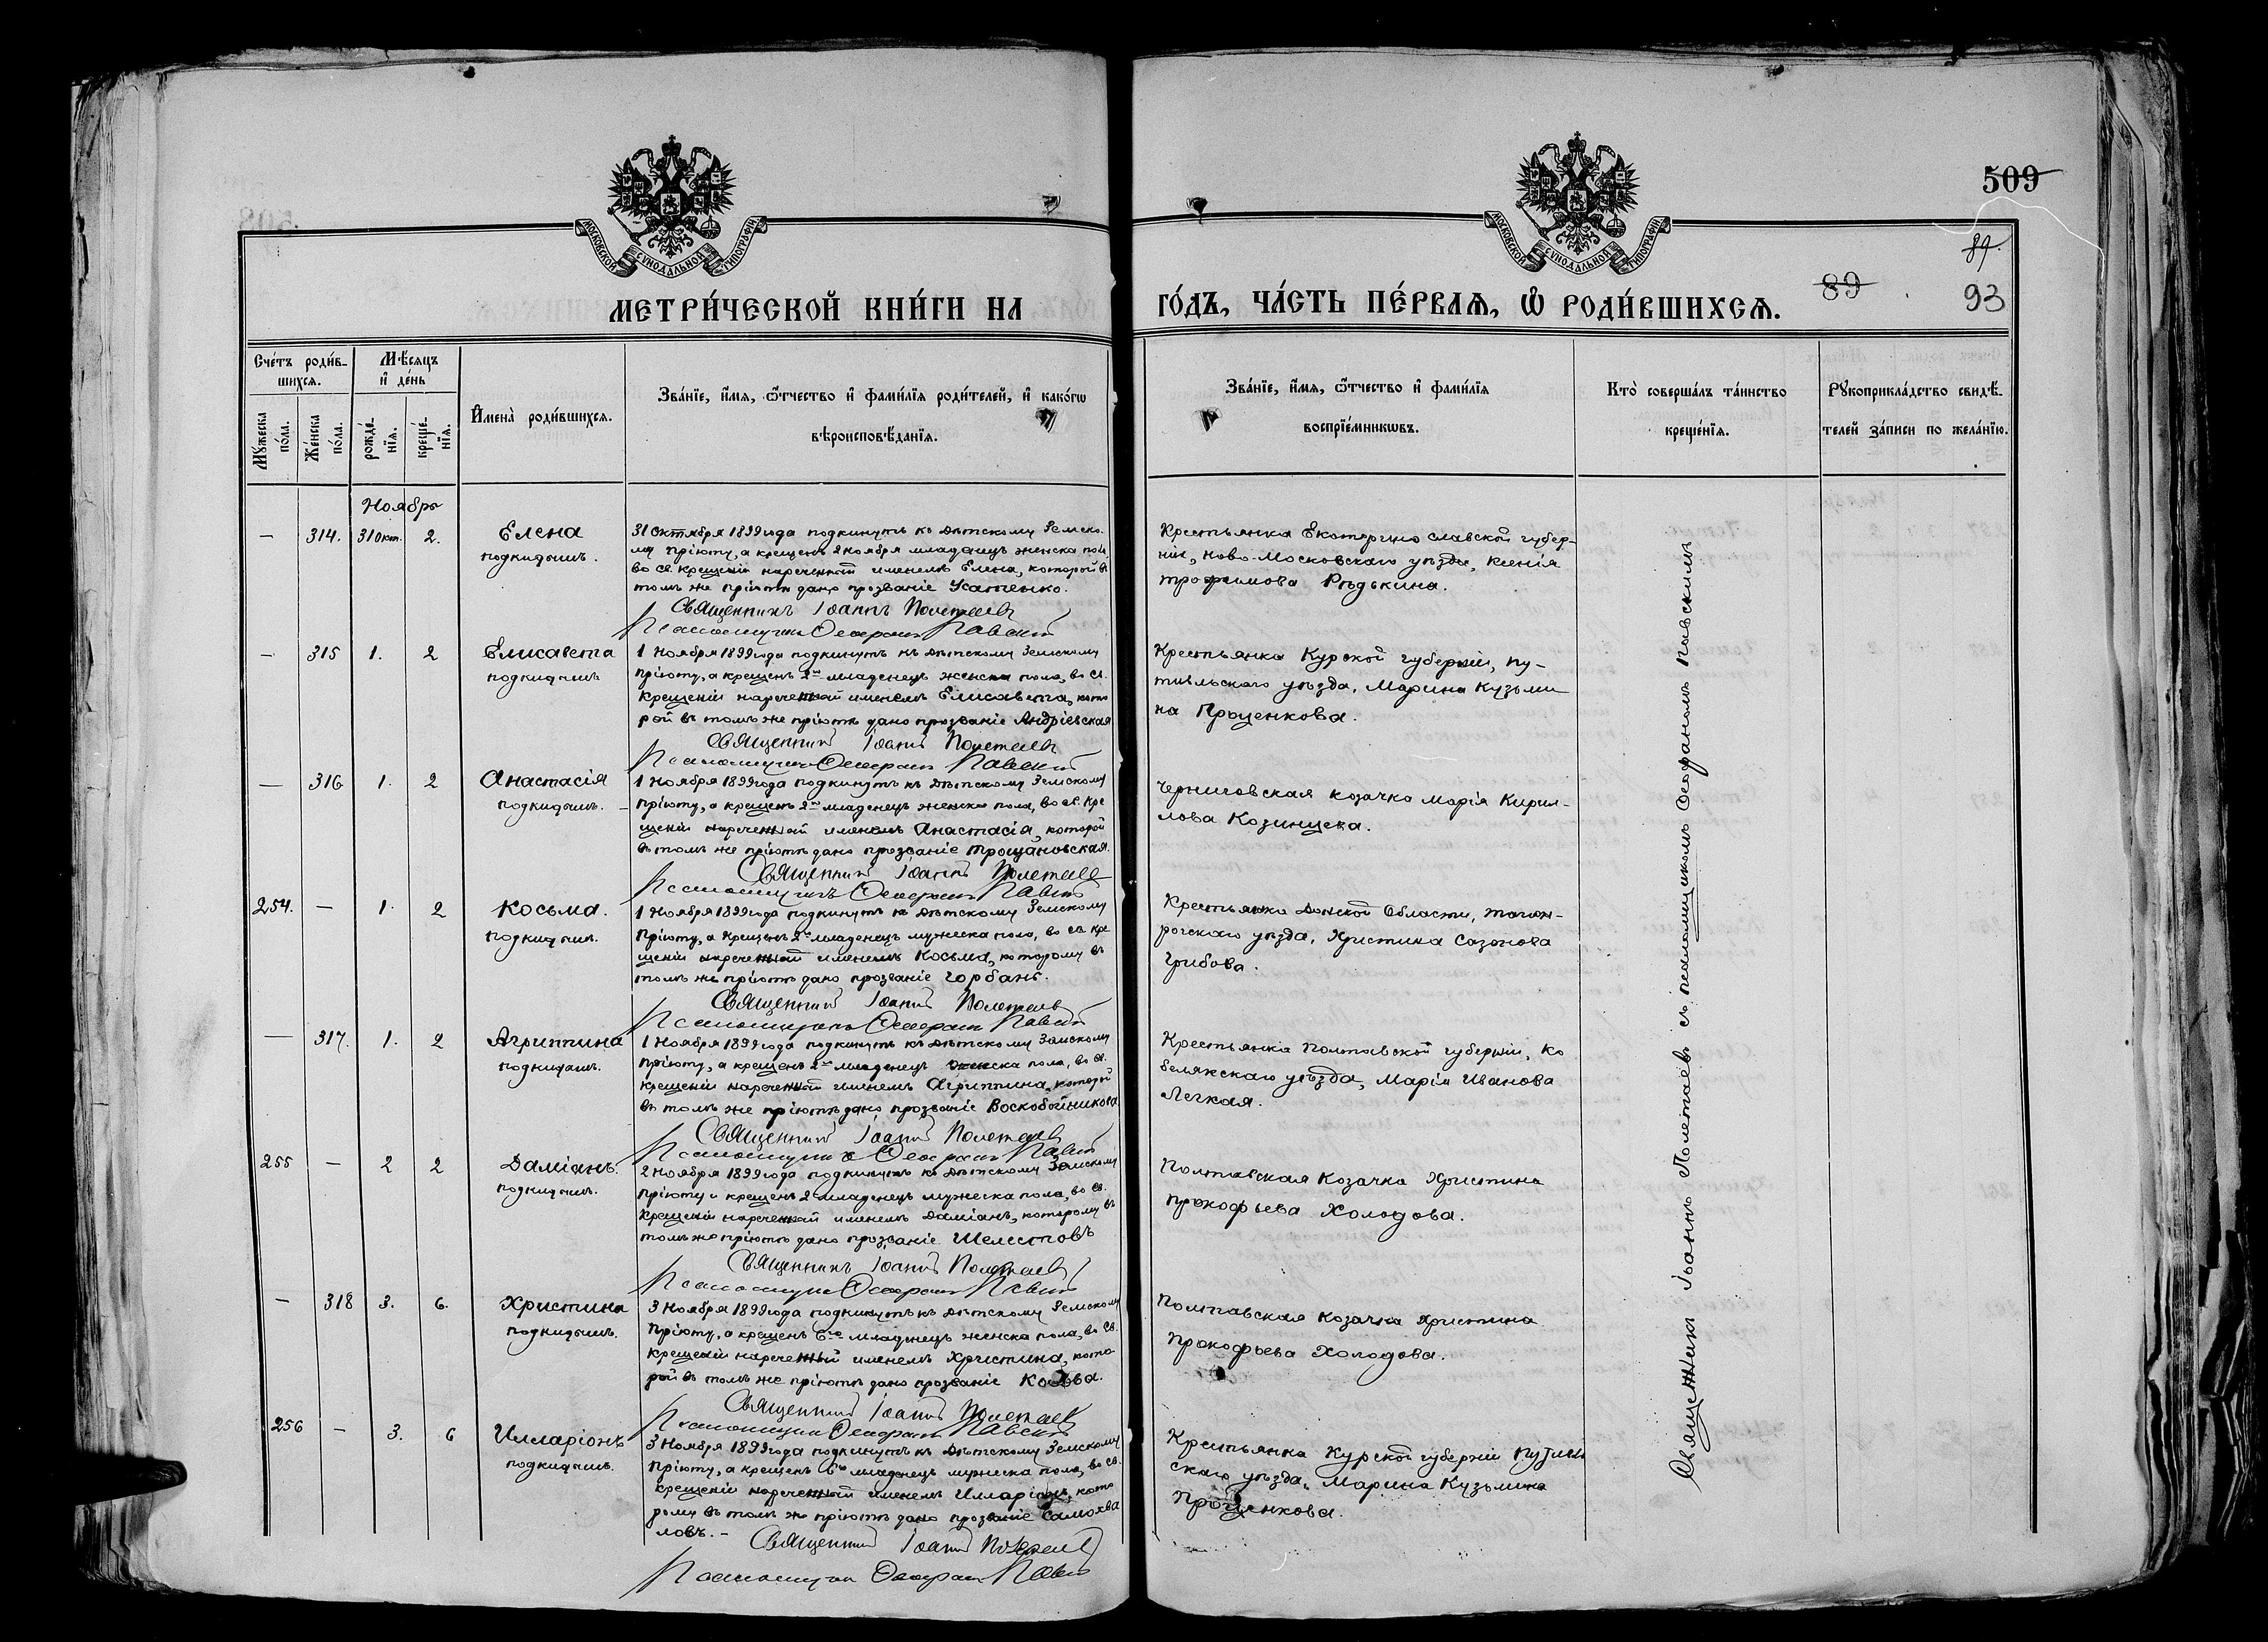 509
89.
89
93
МОСКОВСКОЙ СѴНОДАЛЬНОЙ ТИПОГРАФІИ
МОСКОВСКОЙ СѴНОДАЛЬНОЙ ТИПОГРАФІИ
МЕТРИ́ЧЕСКОЙ КНИ́ГИ НА ГО́ДЪ, ЧА́СТЬ ПЕ́РВАЯ, Ѡ РОДИ́ВШИХСЯ.
Сче́тъ роди́в-
шихся.
Мѣ́сяцъ
и де́нь
Мꙋ́жеска по́ла.
Же́нска по́ла.
рожде́нїя.
креще́нїя.
И҆мена̀ роди́вшихся.
Зва́нїе, и҆́мя, ѻ҆́тчество и҆ фами́лїя роди́телей, и҆ како́гѡ
вѣроисповѣ́данїя.
Зва́нїе, и҆́мя, ѻ҆́тчество и҆ фами́лїя
воспрїе́мникѡвъ.
Кто̀ соверша́лъ та́инство
креще́нїя.
Рꙋкоприкла́дство свидѣ́-
телей за́писи по жела́нїю.
Ноябрь
— 314. 31 окт. 2. Елена
подкидышъ.
31 Октября 1899 года подкинутъ къ Дѣтскому Земско-
му пріюту, а крещенъ 2 ноября младенецъ женска пола,
во св. крещеніи нареченный именемъ Елена, которой въ
томъ же пріютѣ дано прозваніе Усатенко.
Священникъ Іоаннъ Полетаевъ
Псаломщикъ Ѳеофанъ Павскій
Крестьянка Екатеринославской губер-
ніи, Ново-Московскаго уѣзда, Ксенія
Трофимова Рѣдькина.
— 315 1. 2 Елисавета
подкидышъ
1 Ноября 1899 года подкинутъ къ Дѣтскому Земскому
пріюту, а крещенъ 2го младенецъ женска пола, во св.
крещеніи нареченный именемъ Елисавета, кото
рой въ томъ же пріютѣ дано прозваніе Андріевская
Священникъ Іоаннъ Полетаевъ
Псаломщикъ Ѳеофанъ Павскій
Крестьянка Курской губерніи, Пу-
тивльскаго уѣзда, Марина Кузьми
на Проценкова.
— 316 1. 2 Анастасія
подкидышъ.
1 Ноября 1899 года подкинутъ къ Дѣтскому Земскому
пріюту, а крещенъ 2го младенецъ женска пола, во св. кре
щеніи нареченный именемъ Анастасія, которой
въ томъ же пріютѣ дано прозваніе Трощановская.
Священникъ Іоаннъ Полетаевъ
Псаломщикъ Ѳеофанъ Павскій
Черниговская козачка Марія Кирил-
лова Козинцева.
254. — 1. 2 Косьма.
подкидышъ.
1 Ноября 1899 года подкинутъ къ Дѣтскому Земскому
пріюту, а крещенъ 2го младенецъ мужеска пола, во св. кре
щеніи нареченный именемъ Косьма, которому въ
томъ же пріютѣ дано прозваніе Горбань.
Священникъ Іоаннъ Полетаевъ
Псаломщикъ Ѳеофанъ Павскій
Крестьянка Донской Области, Таган-
рогскаго уѣзда, Христина Сазонова
Грибова.
— 317. 1. 2 Агриппина
подкидышъ.
1 Ноября 1899 года подкинутъ къ Дѣтскому Земскому
пріюту, а крещенъ 2го младенецъ женска пола, во св.
крещеніи нареченный именемъ Агриппина, которой
въ томъ же пріютѣ дано прозваніе Воскобойникова
Священникъ Іоаннъ Полетаевъ
Псаломщикъ Ѳеофанъ Павскій
Крестьянка Полтавской губерніи, Ко
белякскаго уѣзда, Марія Иванова
Легкая.
255 — 2 2 Даміанъ.
подкидышъ.
2 Ноября 1899 года подкинутъ къ Дѣтскому Земскому
пріюту и крещенъ 2 младенецъ мужеска пола, во св.
крещеніи нареченный именемъ Даміанъ, которому въ
томъ же пріютѣ дано прозваніе Шелестовъ
Священникъ Іоаннъ Полетаевъ
Псаломщикъ Ѳеофанъ Павскій
Полтавская Козачка Христина
Прокофьева Холодова.
— 318 3. 6. Христина
подкидышъ.
3 Ноября 1899 года подкинутъ къ Дѣтскому Земскому
пріюту, а крещенъ 6го младенецъ женска пола, во св.
крещеніи нареченный именемъ Христина, кото-
рой въ томъ же пріютѣ дано прозваніе
Священникъ Іоаннъ Полетаевъ
Псаломщикъ Ѳеофанъ Павскій
Полтавская Козачка Христина
Прокофьева Холодова.
256 — 3. 6 Илларіонъ
подкидышъ.
3 Ноября 1899 года подкинутъ къ Дѣтскому Земскому
пріюту, а крещенъ 6го младенецъ мужеска пола, во св.
крещеніи нареченный именемъ Илларіонъ, кото
рому въ томъ же пріютѣ дано прозваніе Самохва
ловъ. —
Священникъ Іоаннъ Полетаевъ
Псаломщикъ Ѳеофанъ Павскій
Крестьянка Курской губерніи Путивль
скаго уѣзда, Марина Кузьмина
Проценкова.
Священникъ Іоаннъ Полетаевъ съ псаломщикомъ Ѳеофаномъ Павскимъ